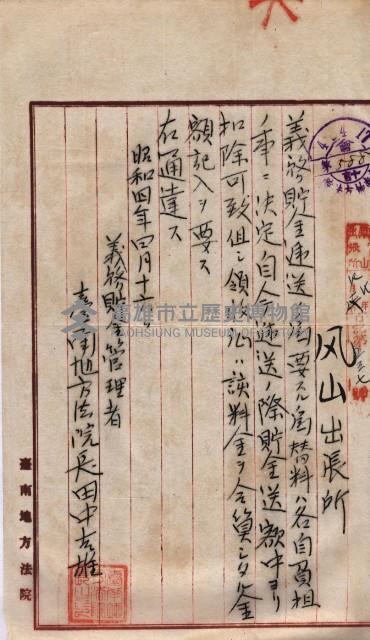 鳳山出張所
義務貯金逓送ニ因要スル為替料ハ各自負担
ノ事ニ決定自今逓送ノ際貯金送額中ヨリ
扣除可致但シ領收証ハ該料金ヲ合算シタル金
額記入ヲ要ス
右通達ス
昭和四年四月十六日
義務貯金管理者
臺南地方法院長田中吉雄
臺南地方法院
高雄市立歷史博物館
KAOHSIUNG MUSEUM OF HISTORY